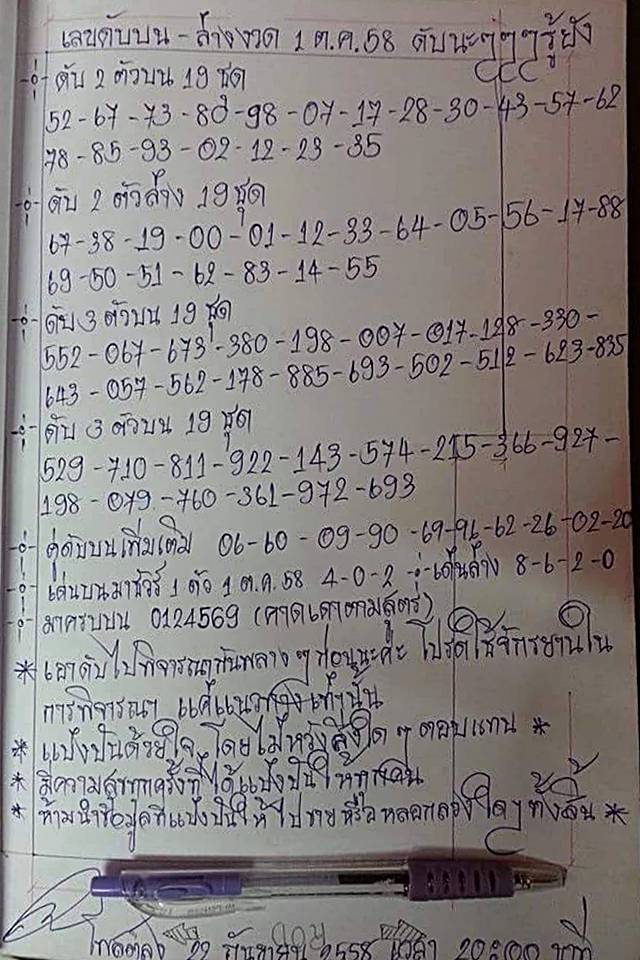 เลขดับบน - ล่างงวด 1 ต.ค.58 ดับนะๆๆๆรู้ยัง
ดับ 2 ตัวบน 19 ชุด
52-67-73-80-98-07-17-28-30-43-57-62
78-85-93-02-12-23-35
ดับ 2 ตัวล่าง 19 ชุด
67-38-19-00-01-12-33-64-05-56-17-88
69-50-51-62-83-14-55
ดับ 3 ตัวบน 19 ชุด
552-067-673-380-198-007-017-128-330-
643-057-562-178-885-693-502-512-623-835
ดับ 3 ตัวบน 19 ชุด
529-710-811-922-143-574-215-366-927-
198-079-760-361-972-693
คู่ดับบนเพิ่มเติม 06-60-09-90-69-96-62-26-02-20
เด่นบนมาชัวร์ 1 ตัว 1 ต.ค.58 4-0-2 เด่นล่าง 8-6-2-0
มาครบบน 0124569 (คาดเดาตามสูตร)
* เลขดับไปพิจารณากันพลางๆก่อนนะคะ โปรดใช้จักรยานใน
การพิจารณา แค่แนวทางเท่านั้น
* แบ่งปันด้วยใจ โดยไม่หวังสิ่งใดๆตอบแทน *
* มีความสุขทุกครั้งที่ได้แบ่งปันให้ทุกคน
* ห้ามนำข้อมูลที่แบ่งปันให้ไปขายหรือหลอกลวงใดๆทั้งสิ้น *
22 กันยายน 2558 เวลา 20:00 นาที